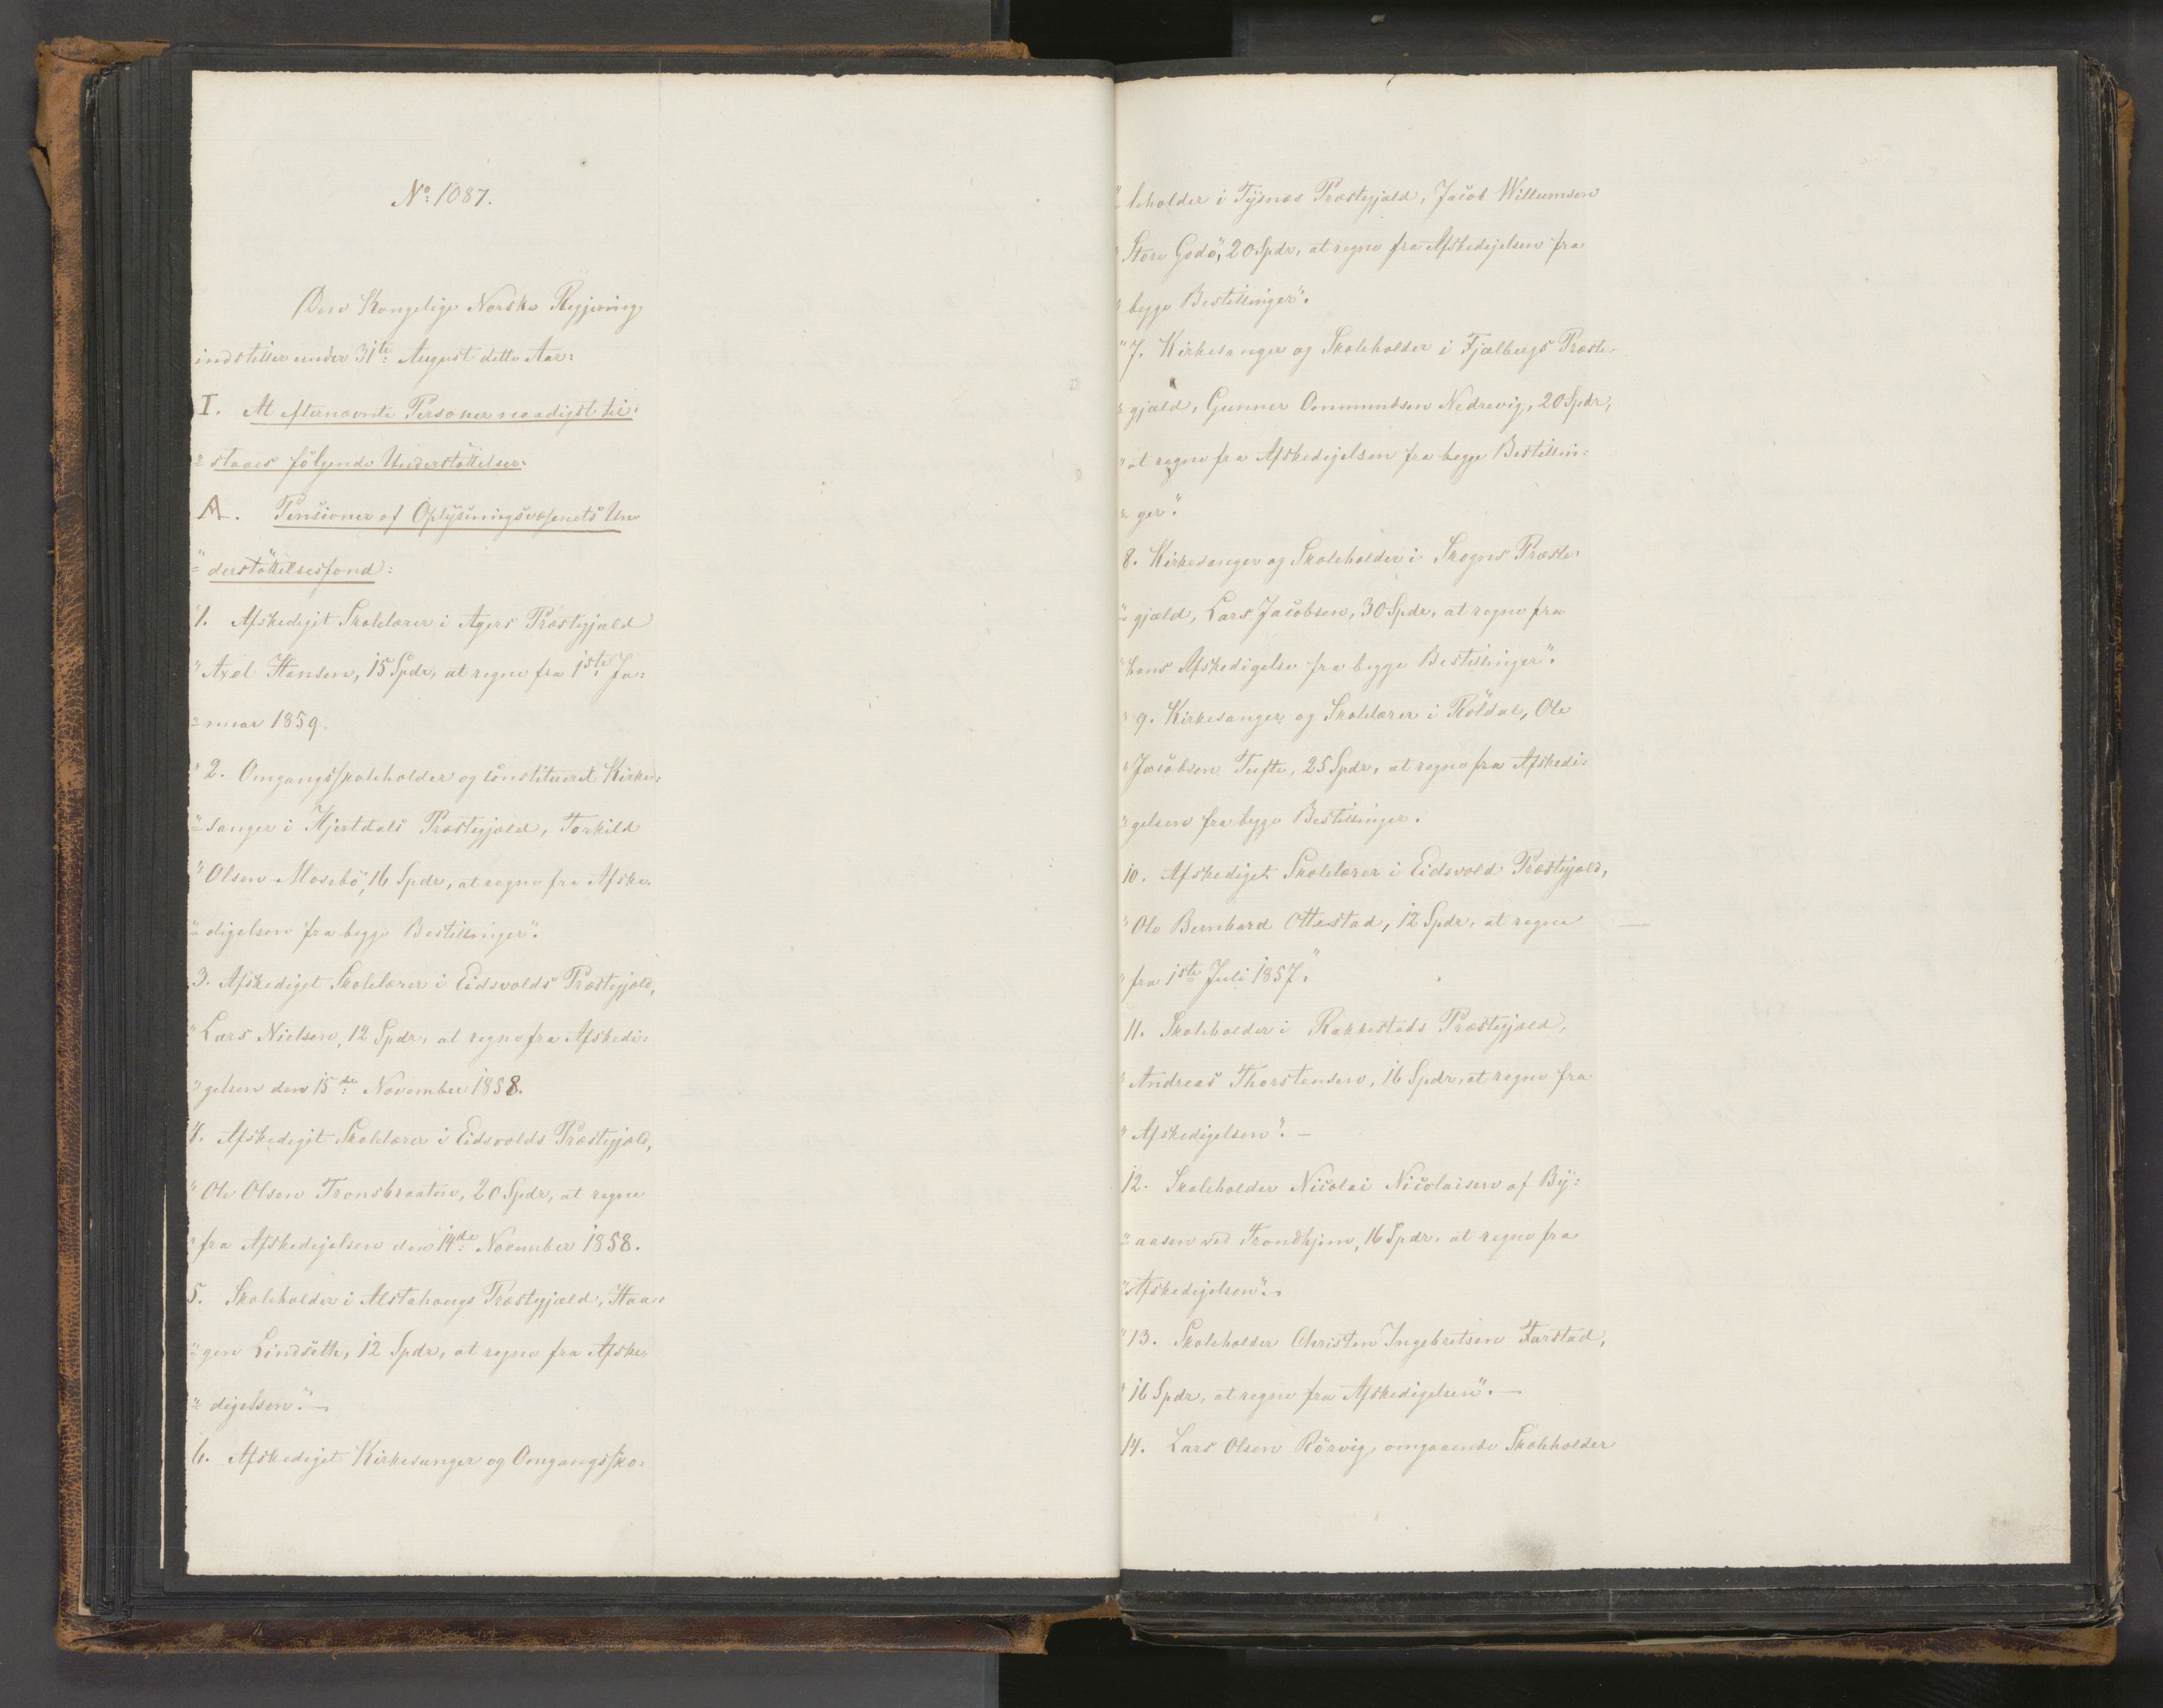 No: 1087.
Den Kongelige Norske Regjering
indstiller under 31te: August dette Aar:
I. At efternævnte Personer naadigst til:
"staaes følgende Understøttelser.
A. Pensioner af Oplysningsvæsenets Un=
"derstøttelsesfond:
1. Afskediget Skolelærer i Agers Præstegjæld
"Axel Hansen, 15 Spdr, at regne fra 1ste Ja:
"nuar 1859.
"2. Omgangsskoleholder og constitueret Kirke:
"sanger i Hjertdals Præstegjæld, Torkild
"Olsen Mosebö, 16 Spdr, at regne fra Afske:
"digelsen fra begge Bestillinger".
3. Afskediget Skolelærer i Eidsvolds Præstegjæld,
"Lars Nielsen, 12 Spdr, at regne fra Afskedi:
"gelsen den 15de: November 1858.
4. Afskediget Skolelærer i Eidsvolds Præstegjæld,
"Ole Olsen Tronsbraaten, 20 Spdr, at regne
"fra Afskedigelsen den 14de: November 1858.
5. Skoleholder i Alstahougs Præstegjæld, Haa:
"gen Lindseth, 12 Spdr, at regne fra Afske:
"digelsen". —
6. Afskediget Kirkesanger og Omgangssko:
"leholder i Tysnæs Præstegjæld, Jacob Willumsen
"Store Godö, 20 Spdr, at regne fra Afskedigelsen fra
"begge Bestillinger".
"7. Kirkesanger og Skoleholder i Fjælbergs Præste:
"gjæld, Gunner Ommundsen Nedrevig, 20 Spdr,
"at regne fra Afskedigelsen fra begge Bestillin:
"ger".
8. Kirkesanger og Skoleholder i Skogns Præste:
"gjæld, Lars Jacobsen, 30 Spdr, at regne fra
"hans Afskedigelse fra begge Bestillinger".
"9. Kirkesanger og Skolelærer i Röldal, Ole
"Jacobsen Tufte, 25 Spdr, at regne fra Afskedi:
"gelsen fra begge Bestillinger.
10. Afskediget Skolelærer i Eidsvold Præstegjæld,
"Ole Bernhard Ottestad, 12 Spdr, at regne
"fra 1ste Juli 1857."
11. Skoleholder i Rakkestads Præstegjæld,
"Andreas Thorstensen, 16 Spdr, at regne fra
"Afskedigelsen". —
12. Skoleholder Nicolai Nicolaisen af By:
"aasen ved Trondhjem, 16 Spdr. at regne fra
"Afskedigelsen". —
"13. Skoleholder Christen Ingebretsen Farstad,
"16 Spdr, at regne fra Afskedigelsen". —
14. Lars Olsen Rörvig, omgaaende Skoleholder